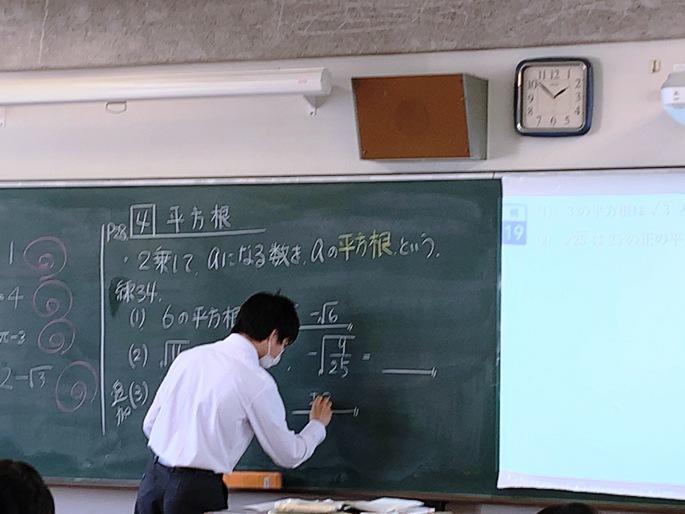 1
=4
π-3
2-√3
P28 4 平方根
・2乗して、aになる数を、aの平方根という。
練34.
(1) 6の平方根 -√6
(2) √ , -√9/25 =
追加 (3)
例 19
3の平方根は √3
√25 は25の正の平
11 12 1
10 2
9 3
8 4
7 6 5